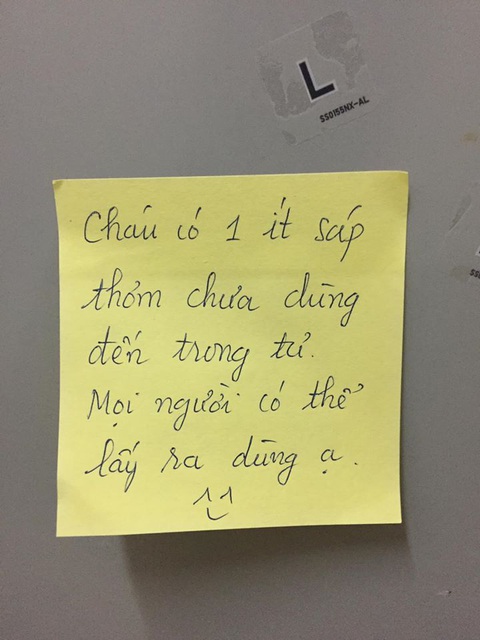 L
SSD155NX-AL
Cháu có 1 ít sáp
thơm chưa dùng
đến trong tủ.
Mọi người có thể
lấy ra dùng ạ.